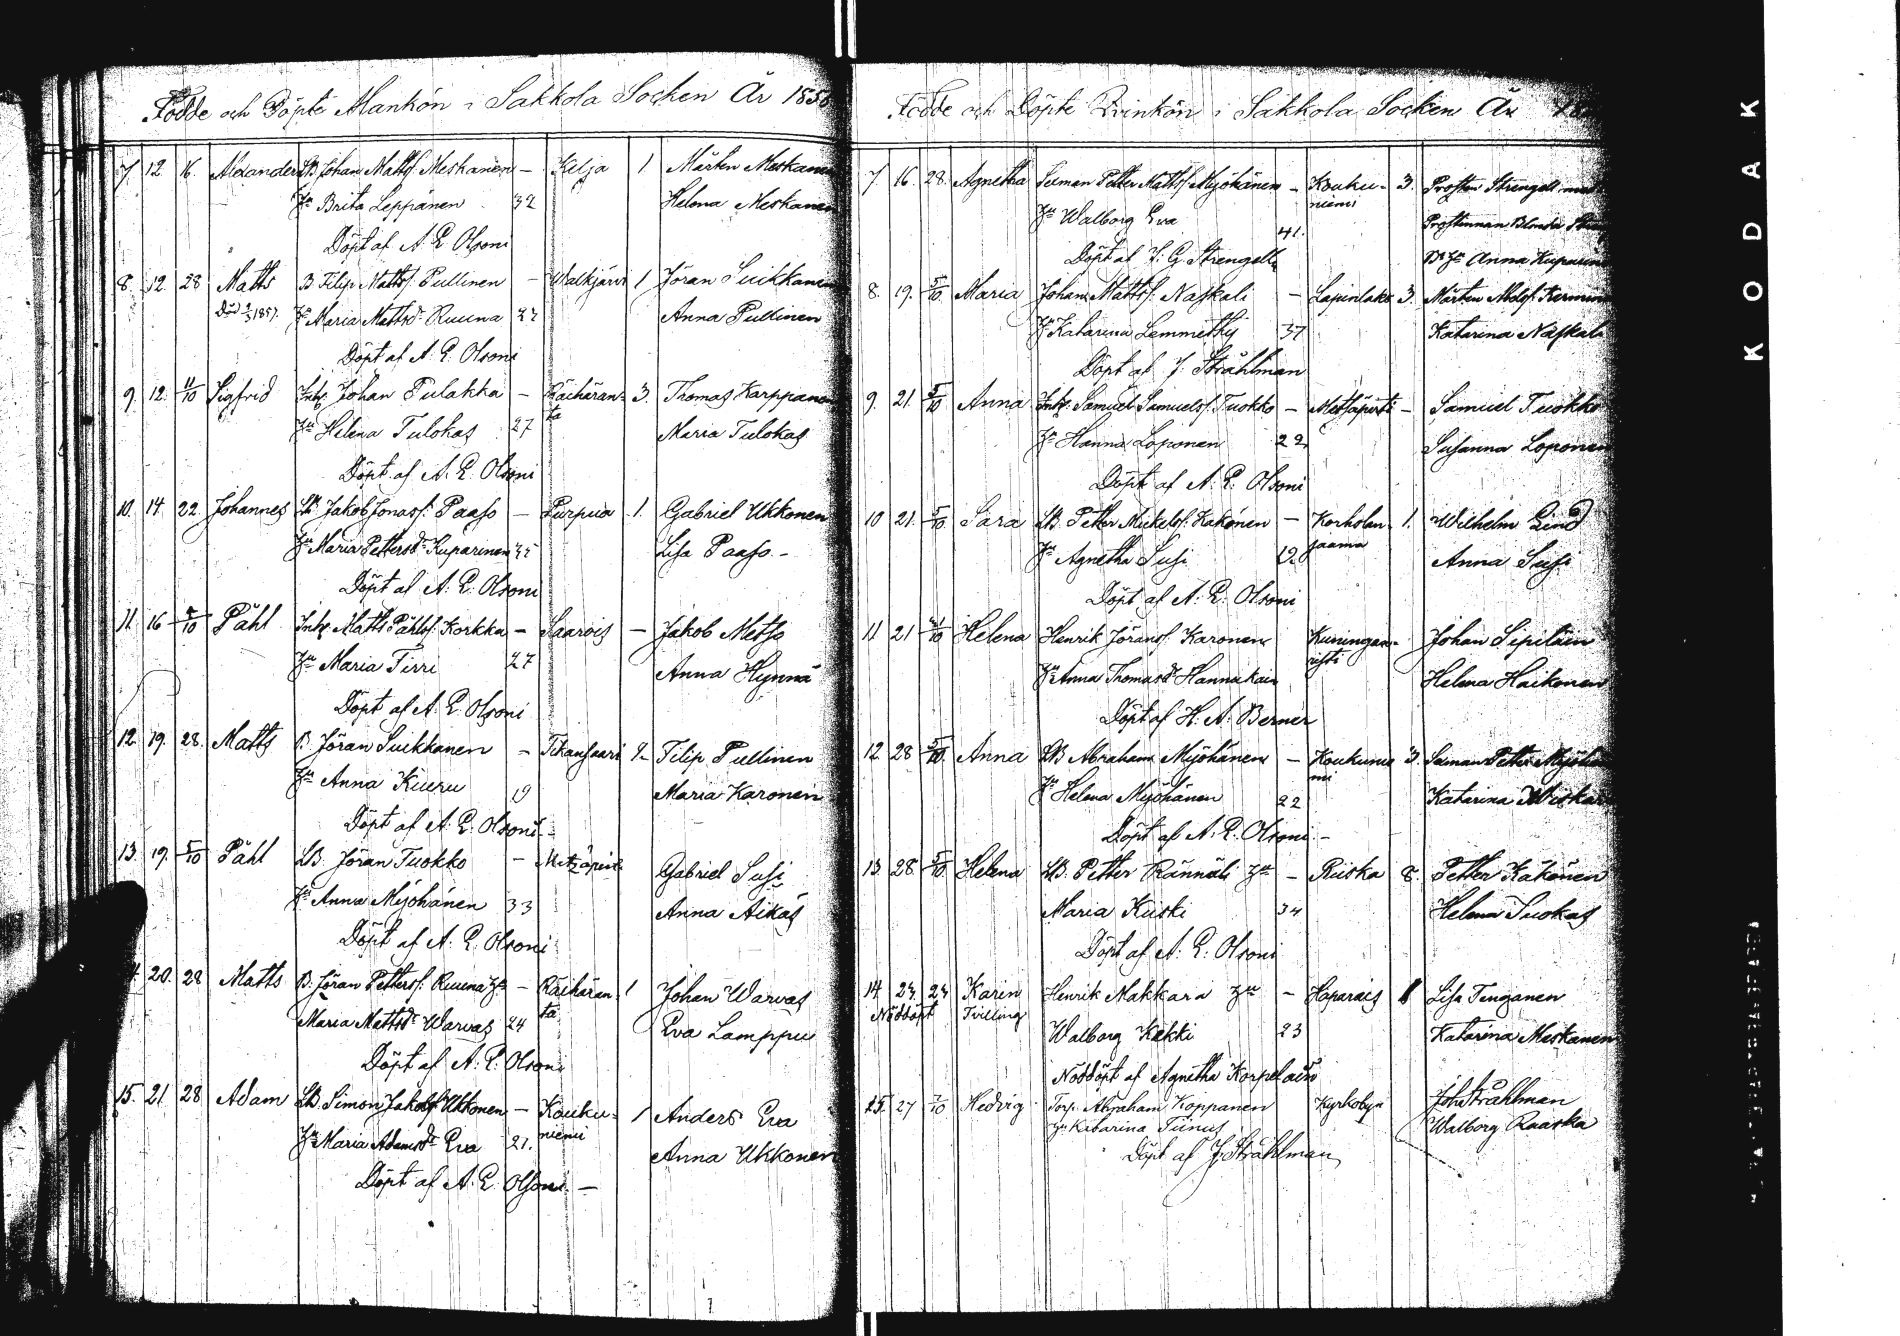 Födde och Döpte Mankön i Sakkola Socken År 185
7. 12 16. Alexander LB. Johan Matts. Meskanen – Kelja 1 Mårten Meskanen
Hu Brita Leppänen 32 Helena Meskanen
Döpt af A. E. Olsoni
8. 12. 28 Matts B. Filip Matts. Pullinen – Walkjärvi 1 Jöran Suikkanen
Död 1857. Hu Maria Mattsdr Ruuna 27 Anna Pullinen
Döpt af A. E. Olsoni
9. 12. 11/10 Sigfrid Inh. Johan Pulakka – Räihäran- 3. Thomas Karppanen
Hu Helena Tulokas 27 ta Maria Tulokas
Döpt af A. E. Olsoni
10. 14. 22. Johannes LB. Jakob Jonass. Paaso – Purpua 1. Gabriel Ukkonen
Hu Maria Pettersdr Kuparinen 35 Lisa Paaso –
Döpt af A. E. Olsoni
11. 16 5/10 Påhl Inh. Matts Påhls. Korkka – Saarois – Jakob Metso
Hu Maria Tirri 27 Anna Hynnä
Döpt af A. E. Olsoni
12. 19. 28. Matts B. Jöran Suikkanen – Tikansaari 2 – Filip Pullinen
Hu Anna Kiuru 19 Maria Karonen
Döpt af A. E. Olsoni –
13. 19. 5/10 Påhl LB. Jöran Tuokko – Metzäpirt Gabriel Susi
Hu Anna Myöhänen 33 Anna Aikäs
Döpt af A. E. Olsoni
20. 28 Matts B. Jöran Petters. Ruuna Hu – Räihäran- 1 Johan Warvas
Maria Mattsdr Warvas 24 ta Eva Lamppu
Döpt af A. E. Olsoni
15. 21 28 Adam LB. Simon Jakobs. Ukkonen – Kouku- 1 Anders Eva
Hu Maria Adamsdr Eva 21. niemi Anna Ukkonen
Döpt af A. E. Olsoni –
Födde och Döpte Qvinkön i Sakkola Socken År
7 16. 28. Agnetha Seiman Petter Matts. Myöhänen – Kouku- 3. Prosten Strengell
Hu Walborg Eva 41. niemi Prostinnan
Döpt af J. G. Strengell Anna Kuparinen
8. 19. 5/10 Maria Johan Matts. Naskali – Lapinlaks 3. Mårten
Hu Katarina Lemmetty 37 Katarina Naskali
Döpt af J. Stråhlman
9. 21. 5/10 Anna Inh. Samuel Samuels. Tuokko – Metsäpirti – Samuel Tuokko
Hu Hanna Loponen 22 Susanna Loponen
Döpt af A. E. Olsoni
10 21. 5/10 Sara LB. Petter Mickels. Kakönen – Korholan- 1. Wilhelm Lind
Hu Agnetha Susi 19 jaama Anna Susi
Döpt af A. E. Olsoni
11 21 /10 Helena Henrik Jörans. Karonen Kuningan- Johan Sipiläin
Hu Anna Thomasdr Hannukain risti Helena Haikonen
Döpt af H. A. Berner
12. 28 5/10 Anna LB Abraham Myöhänen – Koukunie 3. Seiman Petter
Hu Helena Myöhänen 22 mi Katarina
Döpt af A. E. Olsoni –
13. 28. 5/10 Helena LB. Petter Rännäli Hu – Riiska 8. Petter Käkönen
Maria Kiiski 34 Helena Suokas
Döpt af A. E. Olsoni
14. 23. 24 Karin Henrik Makkara Hu – Haparais Lisa Tenganen
Nöddöpt Tvilling Walborg Kekki 23 Katarina Meskanen
Nöddöpt af Agnetha Korpelain
15. 27 7/10 Hedvig Torp. Abraham Koppanen Kyrkobyn Joh. Stråhlman
Hu Katarina Tiinus Walborg Raaska
Döpt af J. Stråhlman
KODAK